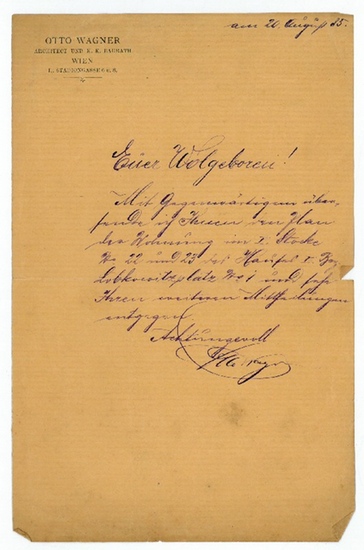 OTTO WAGNER
ARCHITECT UND K. K. BAURATH
WIEN
I., STADIONGASSE 6 u. 8.
am 20. August 85.
Euer Wolgeboren!
Mit Gegenwärtigem über-
sende ich Ihnen den Plan
der Wohnung im 2. Stocke
No 22 und 23 des Hauses I. Bez.
Lobkowitzplatz No 1 und sehe
Ihren weiteren Mittheilungen
entgegen
Achtungsvoll